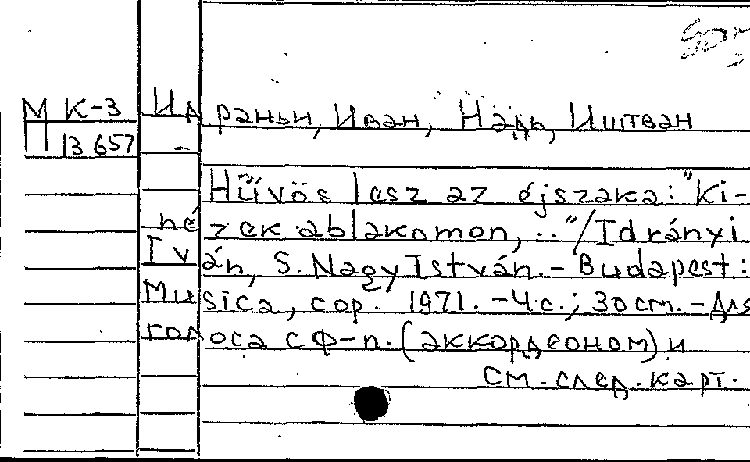 М К-3 Идраньи, Иван, Надь, Иштван
П 13 657
Hűvös lesz az éjszaka: "Ki-
nézek ablakomon, .." / Idrányi
Iván, S. Nagy István. - Budapest:
Musica, cop. 1971. - 4 с.; 30 см. - Для
голоса с ф-п. (аккордеоном) и
см. след. карт.